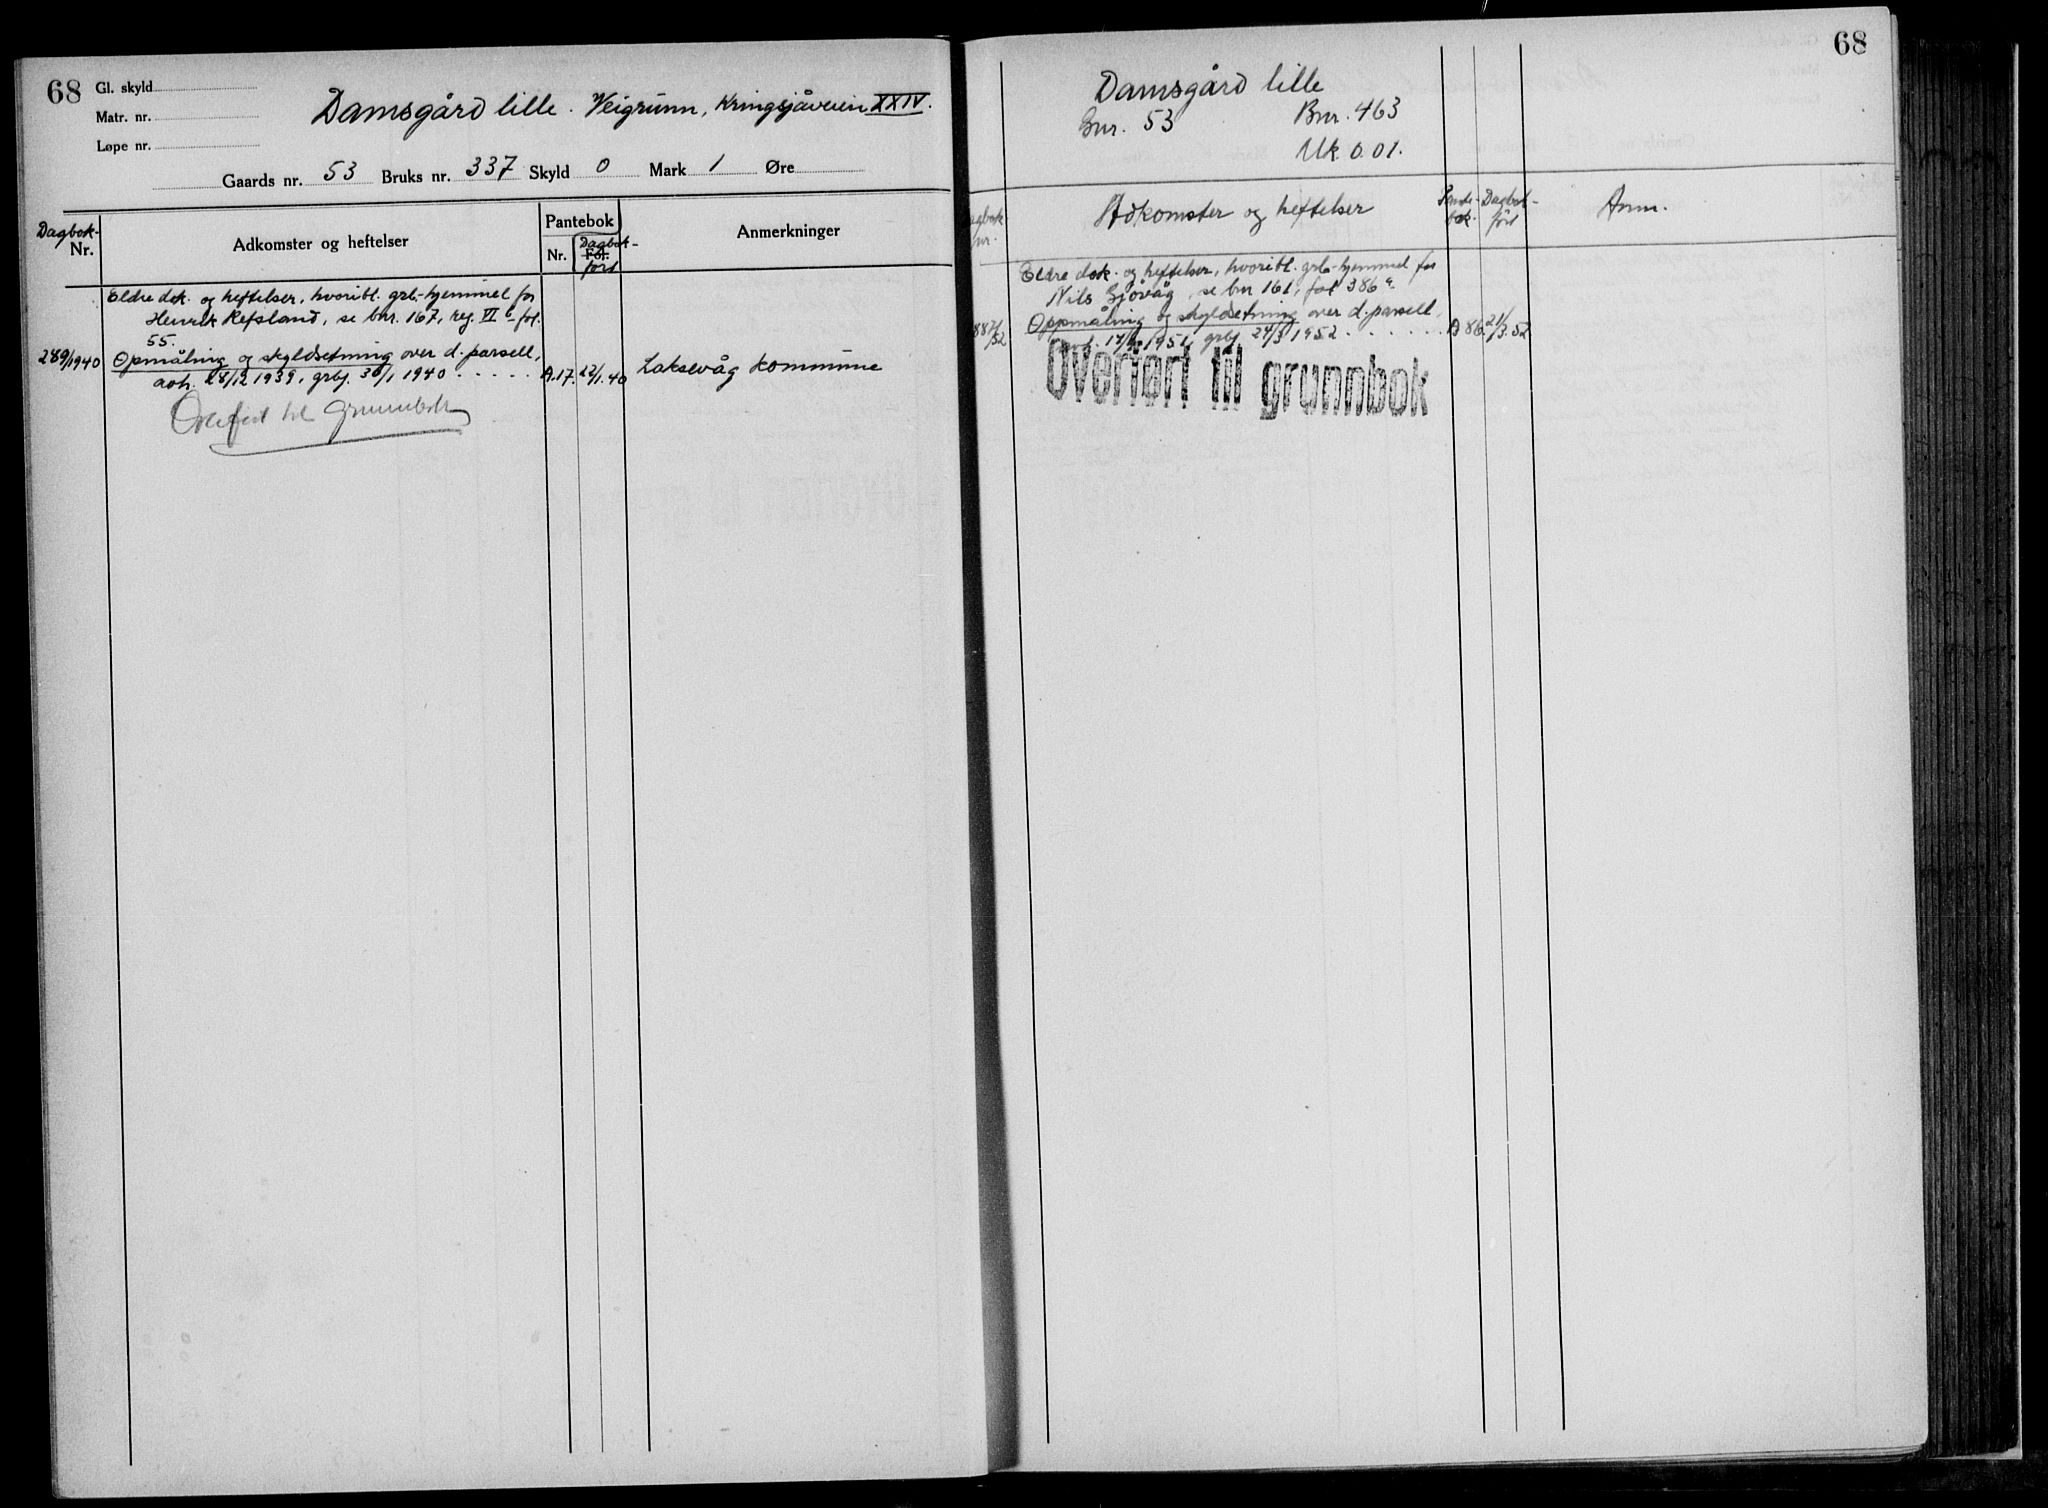 68
Gl. skyld
Matr. nr.
Løpe nr.
Damsgård lille. Veigrunn, Kringsjåveien XXIV.
Gaards nr. 53 Bruks nr. 337 Skyld 0 Mark 1 Øre
Dagbok-
Nr.
Adkomster og heftelser
Pantebok
Nr.
Dagbok-
Fol.
ført
Anmerkninger
Eldre dok. og heftelser, hvoribl. grb-hjemmel for
Henrik Refsland, se bnr. 167, reg. VI fol.
55.
289/1940 Opmåling og skyldsetning over d. parsell,
avh. 28/12 1939, grbj. 30/1 1940 . . . . . A.17. 22/1.40 Laksevåg kommune
Overført til Grunnbok
68
Damsgård lille
Gnr. 53 Bnr. 463
Mk 0.01.
Dagbok
nr.
Adkomster og heftelser
Pante-
bok.
Dagbok-
ført
Anm.
Eldre dok. og heftelser, hvoribl. grb-hjemmel for
Nils Gjøvåg, se bnr 161, fol 386
887/52 Oppmåling og skyldsetning over d. parsell,
1951, grbj 24/3 1952 . . . . . . A 86 21/3.52
Overført til grunnbok